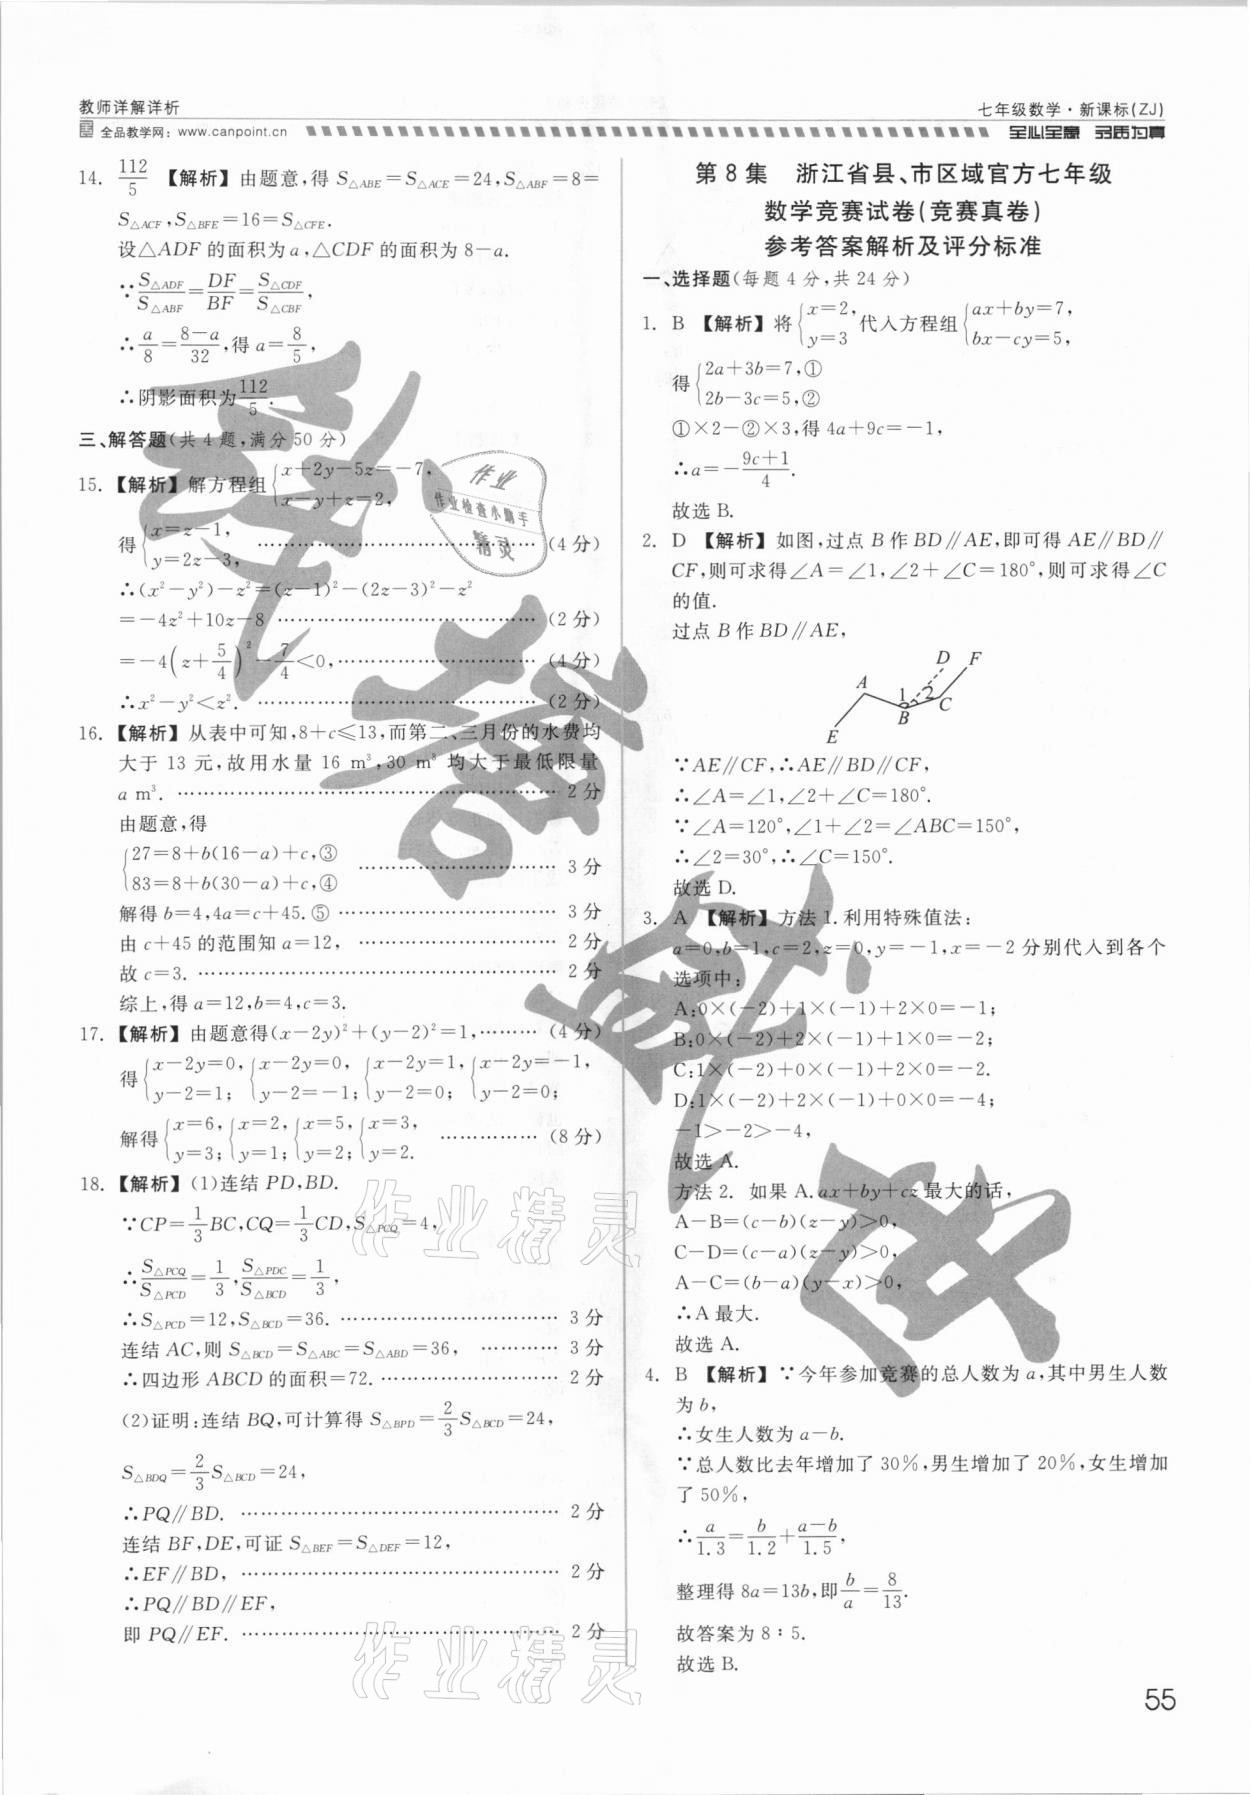 教师详解详析
七年级数学·新课标(ZJ)
全品教学网：www.canpoint.cn
全心全意 夯质为真
14. 112/5 【解析】由题意,得 S△ABE=S△ACE=24,S△ABF=8=
S△ACF,S△BFE=16=S△CFE.
设△ADF 的面积为 a,△CDF 的面积为 8-a.
∵S△ADF/S△ABF=DF/BF=S△CDF/S△CBF,
∴a/8=(8-a)/32,得 a=8/5,
∴阴影面积为112/5.
三、解答题(共 4 题,满分 50 分)
15. 【解析】解方程组{x+2y-5z=-7, x-y+z=2,
得{x=z-1, y=2z-3, ……(4 分)
∴(x²-y²)-z²=(z-1)²-(2z-3)²-z²
=-4z²+10z-8 ……(2 分)
=-4(z+5/4)²-7/4<0,……(4 分)
∴x²-y²<z². ……(2 分)
16. 【解析】从表中可知,8+c≤13,而第二、三月份的水费均
大于 13 元,故用水量 16 m³,30 m³ 均大于最低限量
a m³. ……2 分
由题意,得
{27=8+b(16-a)+c,③ 83=8+b(30-a)+c,④ ……3 分
解得 b=4,4a=c+45.⑤ ……3 分
由 c+45 的范围知 a=12, ……2 分
故 c=3. ……2 分
综上,得 a=12,b=4,c=3.
17. 【解析】由题意得(x-2y)²+(y-2)²=1,……(4 分)
得{x-2y=0, y-2=1; {x-2y=0, y-2=-1; {x-2y=1, y-2=0; {x-2y=-1, y-2=0;
解得{x=6, y=3; {x=2, y=1; {x=5, y=2; {x=3, y=2. ……(8 分)
18. 【解析】(1)连结 PD,BD.
∵CP=1/3BC,CQ=1/3CD,S△PCQ=4,
∴S△PCQ/S△PCD=1/3,S△PDC/S△BCD=1/3,
∴S△PCD=12,S△BCD=36. ……3 分
连结 AC,则 S△BCD=S△ABC=S△ABD=36, ……3 分
∴四边形 ABCD 的面积=72. ……2 分
(2)证明:连结 BQ,可计算得 S△BPD=2/3S△BCD=24,
S△BDQ=2/3S△BCD=24,
∴PQ∥BD. ……2 分
连结 BF,DE,可证 S△BEF=S△DEF=12,
∴EF∥BD, ……2 分
∴PQ∥BD∥EF,
即 PQ∥EF. ……2 分
第 8 集 浙江省县、市区域官方七年级
数学竞赛试卷(竞赛真卷)
参考答案解析及评分标准
一、选择题(每题 4 分,共 24 分)
1. B 【解析】将{x=2, y=3 代入方程组{ax+by=7, bx-cy=5,
得{2a+3b=7,① 2b-3c=5,②
①×2-②×3,得 4a+9c=-1,
∴a=-(9c+1)/4.
故选 B.
2. D 【解析】如图,过点 B 作 BD∥AE,即可得 AE∥BD∥
CF,则可求得∠A=∠1,∠2+∠C=180°,则可求得∠C
的值.
过点 B 作 BD∥AE,
D F
A 1 2 C
B
E
∵AE∥CF,∴AE∥BD∥CF,
∴∠A=∠1,∠2+∠C=180°.
∵∠A=120°,∠1+∠2=∠ABC=150°,
∴∠2=30°,∴∠C=150°.
故选 D.
3. A 【解析】方法 1. 利用特殊值法:
a=0,b=1,c=2,z=0,y=-1,x=-2 分别代入到各个
选项中:
A:0×(-2)+1×(-1)+2×0=-1;
B:0×(-2)+2×(-1)+1×0=-2;
C:1×(-2)+0×(-1)+2×0=-2.
D:1×(-2)+2×(-1)+0×0=-4;
-1>-2>-4,
故选 A.
方法 2. 如果 A. ax+by+cz 最大的话,
A-B=(c-b)(z-y)>0,
C-D=(c-a)(z-y)>0,
A-C=(b-a)(y-x)>0,
∴A 最大.
故选 A.
4. B 【解析】∵今年参加竞赛的总人数为 a,其中男生人数
为 b,
∴女生人数为 a-b.
∵总人数比去年增加了 30%,男生增加了 20%,女生增加
了 50%,
∴a/1.3=b/1.2+(a-b)/1.5,
整理得 8a=13b,即b/a=8/13.
故答案为 8∶5.
故选 B.
55
作业
作业检查小助手
精灵
作业精灵
作业精灵